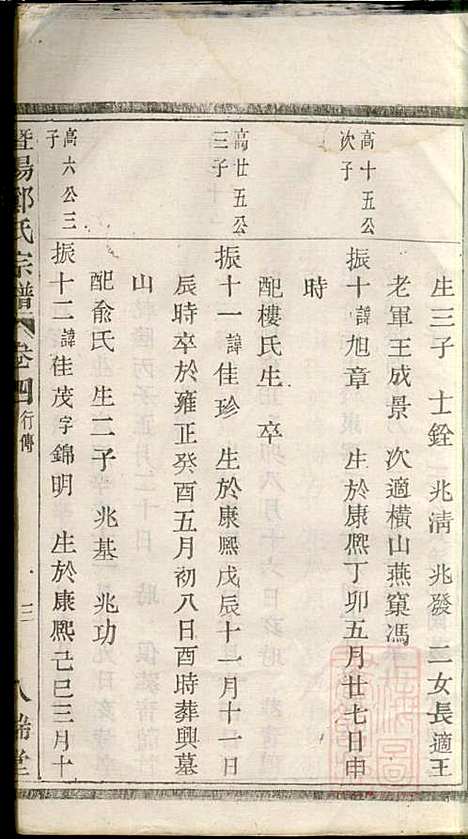 生三子 士銓 兆淸 兆發 二女長適王
老軍王成景 次適橫山燕窠馮
高十五公次子
振十諱旭章 生於康熙丁卯五月廿七日申
時
配樓氏生 卒
高廿五公三子
振十一諱佳珍 生於康熙戊辰十一月十一日
辰時卒於雍正癸酉五月初八日酉時葬興墓
山
配俞氏 生二子 兆基 兆功
高六公三子
振十二諱佳茂字錦明 生於康熙己巳三月十
暨陽 氏宗譜 卷四 行傳 三 八 堂